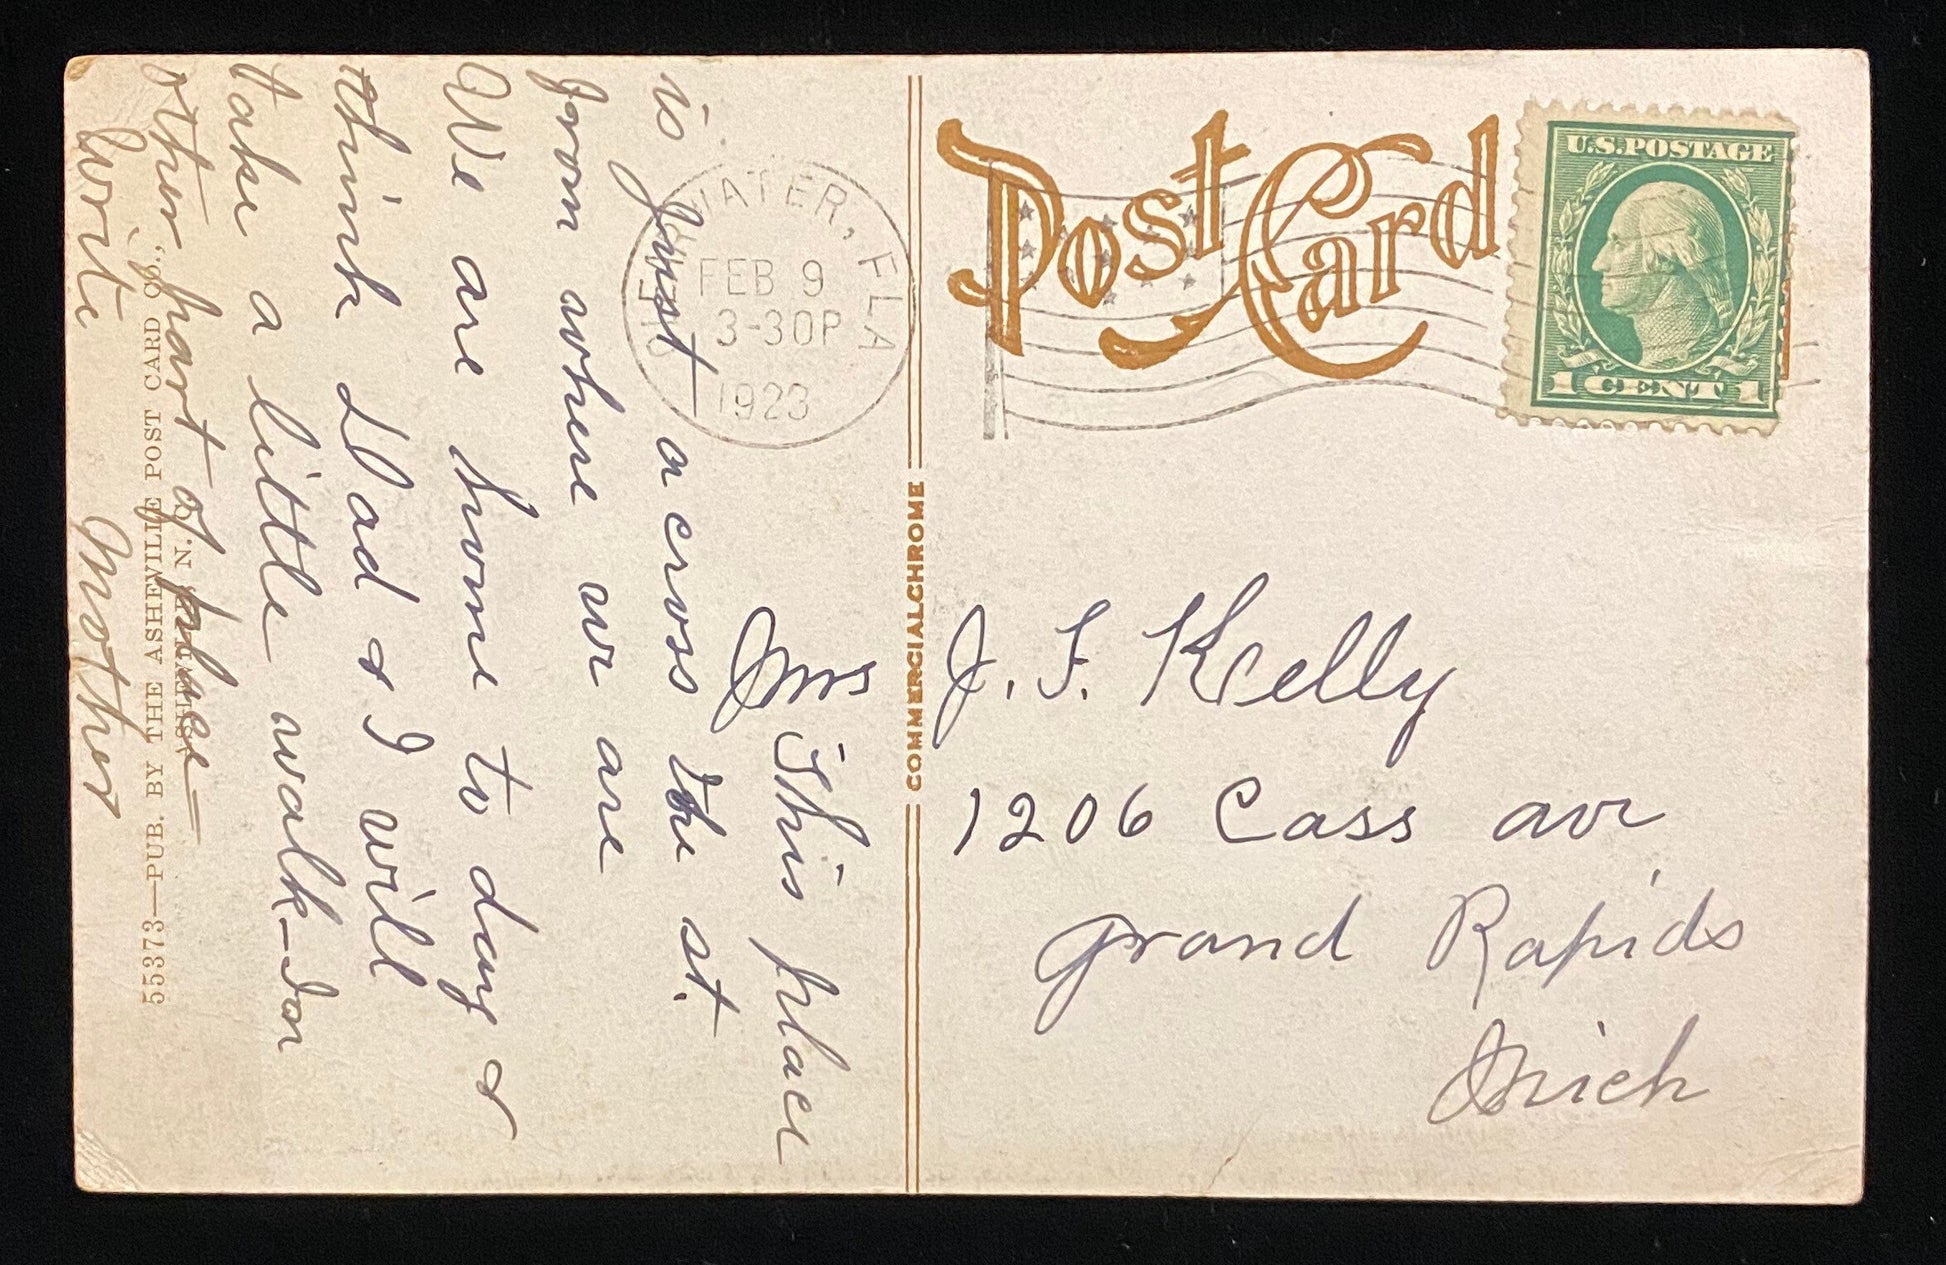 Post Card
U.S. POSTAGE
1 CENT 1
CLEARWATER, FLA
FEB 9
3-30P
1923
COMMERCIALCHROME
Mrs J. F. Kelly
1206 Cass av
Grand Rapids
Mich
This place
is just across the st.
from where we are
We are home to day &
think Dad & I will
take a little walk
other part of place =
Write Mother
55373—PUB. BY THE ASHEVILLE POST CARD CO.,
ASHEVILLE, N. C.